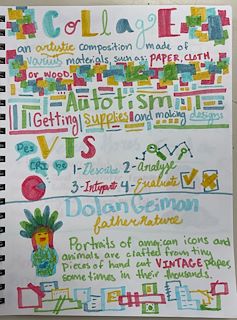 CollagE
an artistic composition made of
various materials, such as: PAPER, CLOTH,
or WOOD.
Autotism
Getting supplies and making designs
VTS
Des
CRI be
1-Describe 2-Analyse
3- 4-Evaluate
Dolan Geiman
father Nature
Portraits of american icons and
animals are clafted from tiny
Pieces of hand cut VINTAGE paper,
sometimes in their thousands.